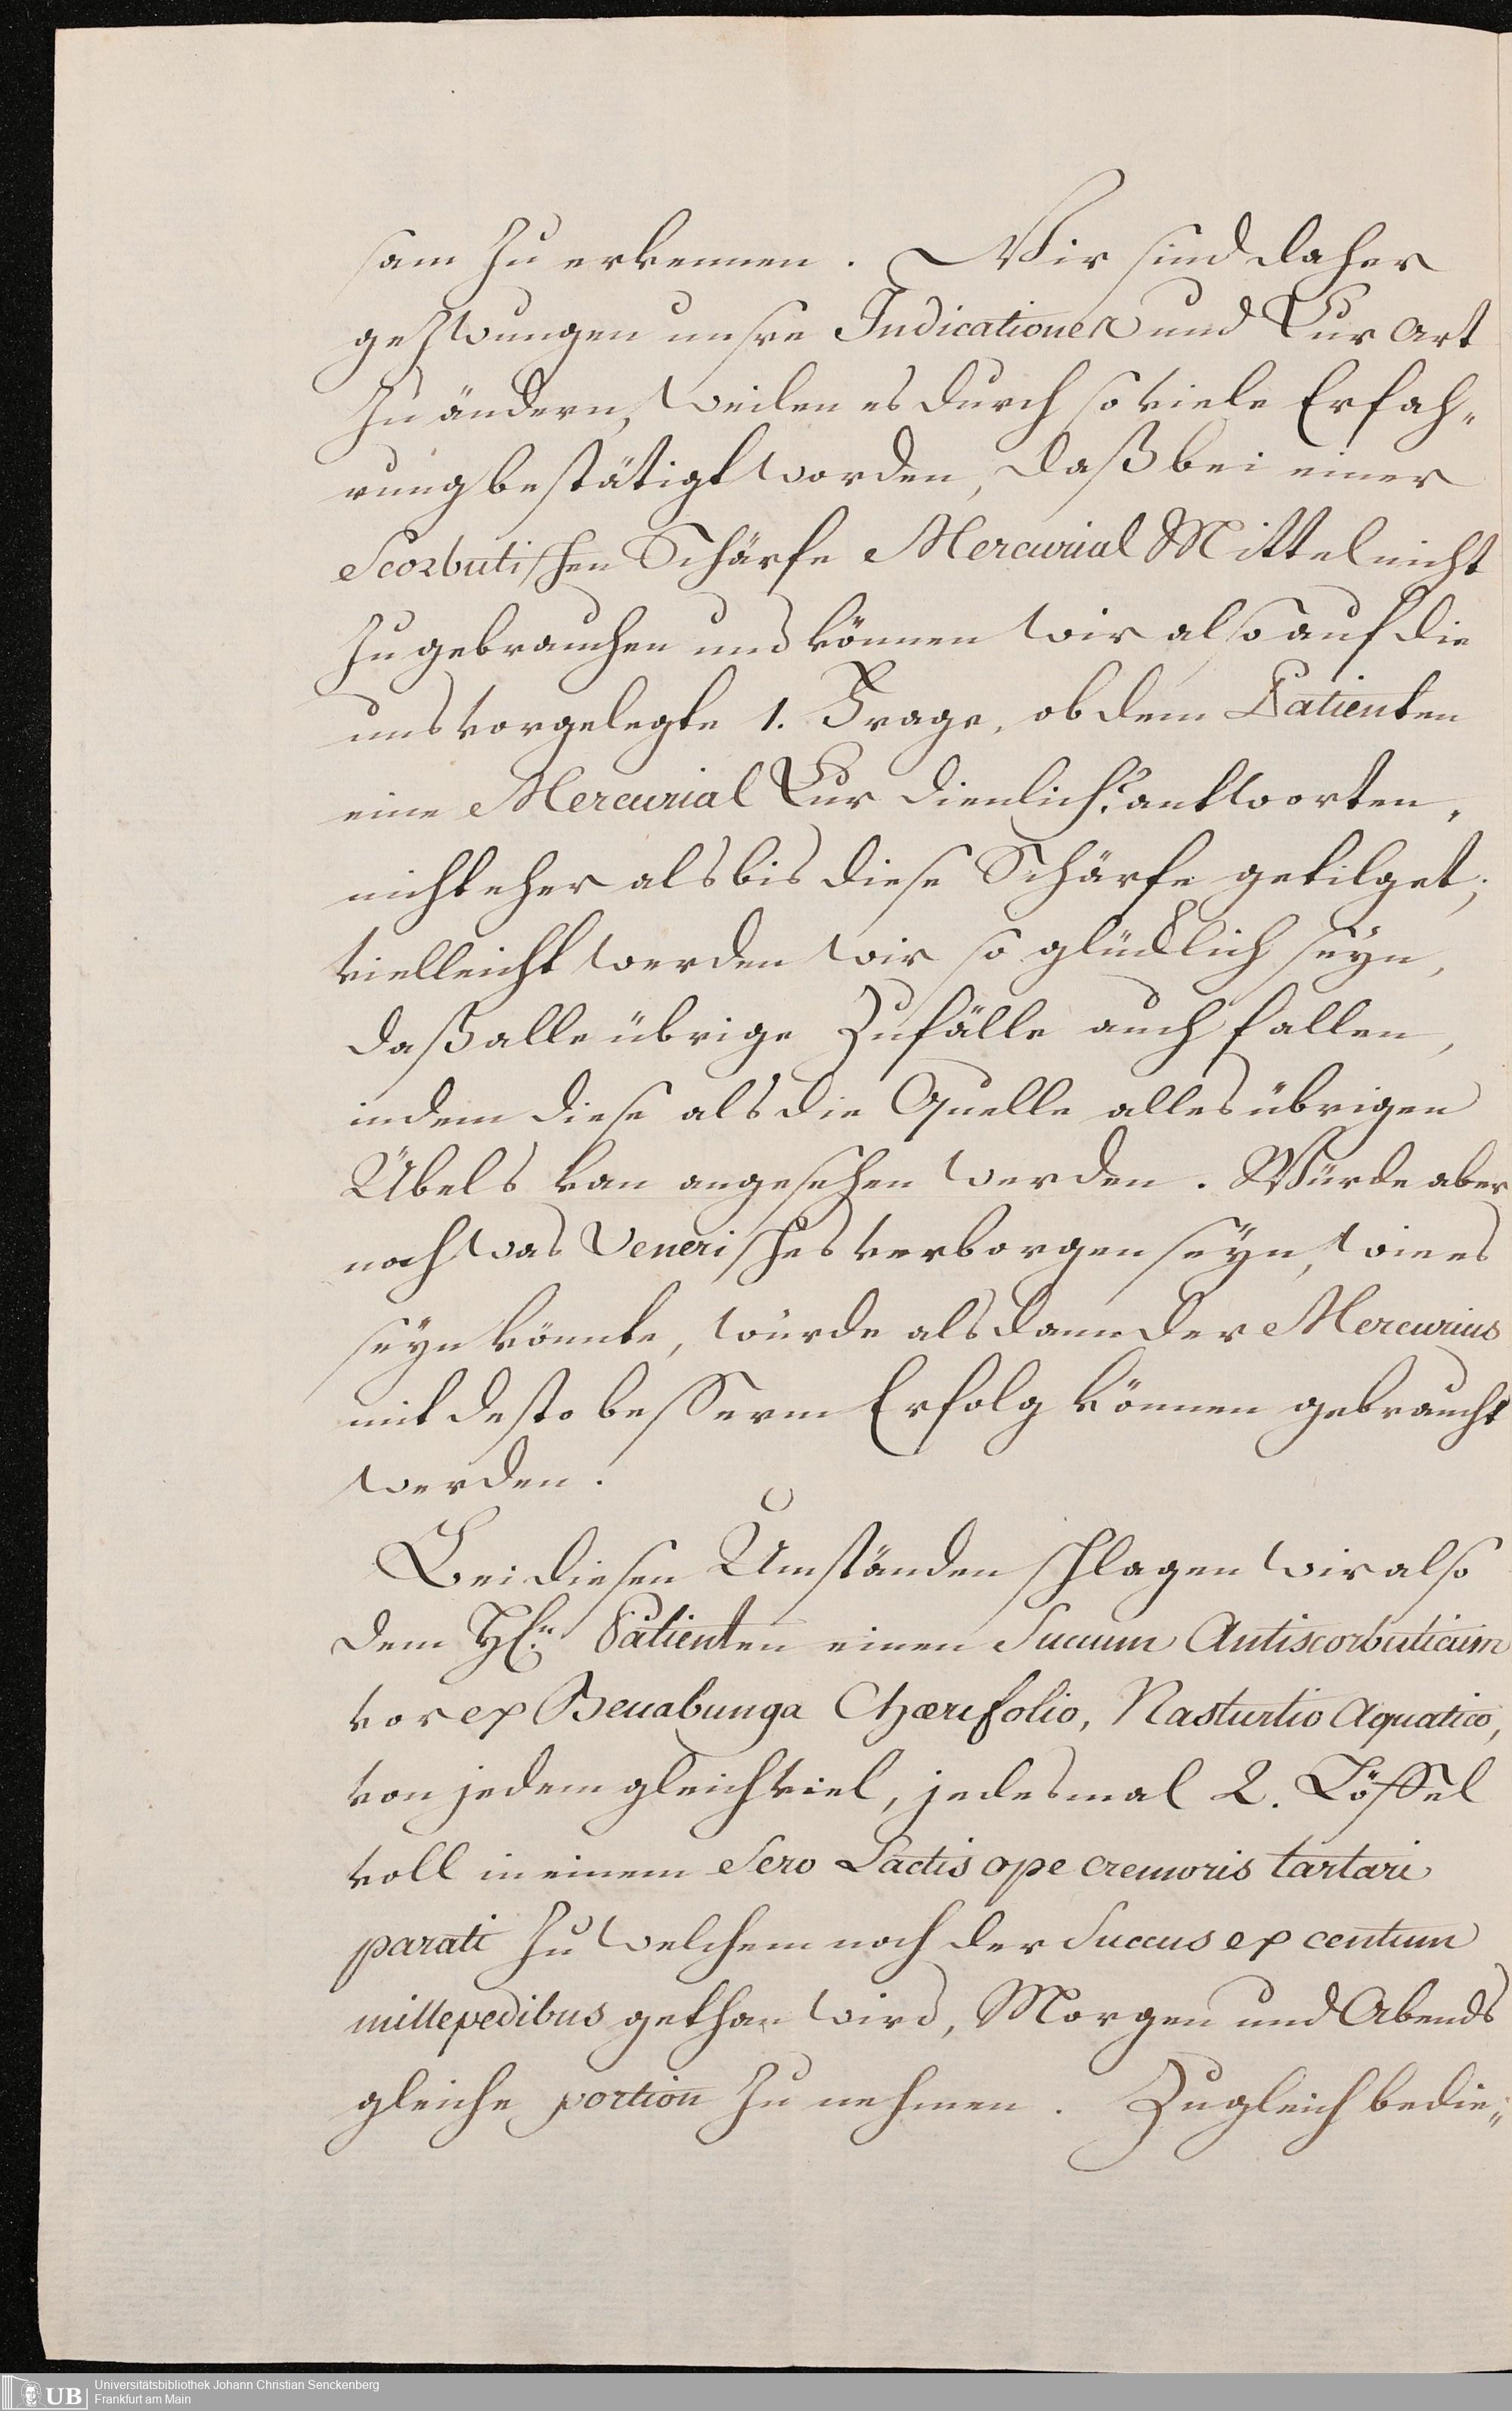 sam zu erkennen. Wir sind daher
gezwungen unsre Indicationen und Cur Art
zu ändern, weilen es durch so viele Erfah-
rung bestätigt worden, daß bei einer
Scorbutischen Schärfe Mercurial Mittel nicht
zu gebrauchen und können wir also auf die
uns vorgelegte 1. Frage, ob dem Patienten
eine Mercurial Cur dienlich? antworten,
nicht eher als bis diese Schärfe getilget;
vielleicht werden wir so glücklich seyn,
daß alle übrige Zufälle auch fallen,
indem diese als die Quelle alles übrigen
Übels kan angesehen werden. Würde aber
noch was Venerisches verborgen seyn, wie es
seyn könnte, würde alsdann der Mercurius
mit desto besserm Erfolg können gebraucht
werden.
Bei diesen Umständen schlagen wir also
dem H͞n Patienten einen Succum Antiscorbuticum
vor ex Beccabunga Chærifolio, Nasturtio Aquatico,
von jedem gleich viel, jedesmal 2. Löffel
voll in einem Sero Lactis ope cremoris tartari
parati zu welchem noch der Succus ex centum
millepedibus gethan wird, Morgen und Abends
gleiche portion zu nehmen. Zugleich bedie-
UB
Universitätsbibliothek Johann Christian Senckenberg
Frankfurt am Main